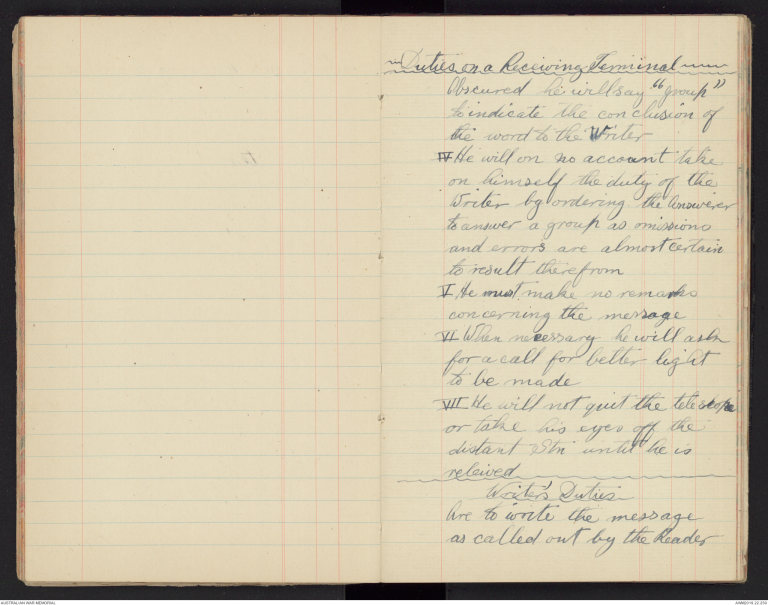 Duties on a Receiving Terminal
Obscured he will say "group"
to indicate the conclusion of
the word to the Writer
IV He will on no account take
on himself the duty of the
Writer by ordering the Answerer
to answer a group as omissions
and errors are almost certain
to result therefrom
V He must make no remarks
concerning the message
VI When necessary he will ask
for a call for better light
to be made
VII He will not quit the telescope
or take his eyes off the
distant Stn until he is
releived
Writer's Duties
Are to write the message
as called out by the Reader
AUSTRALIAN WAR MEMORIAL